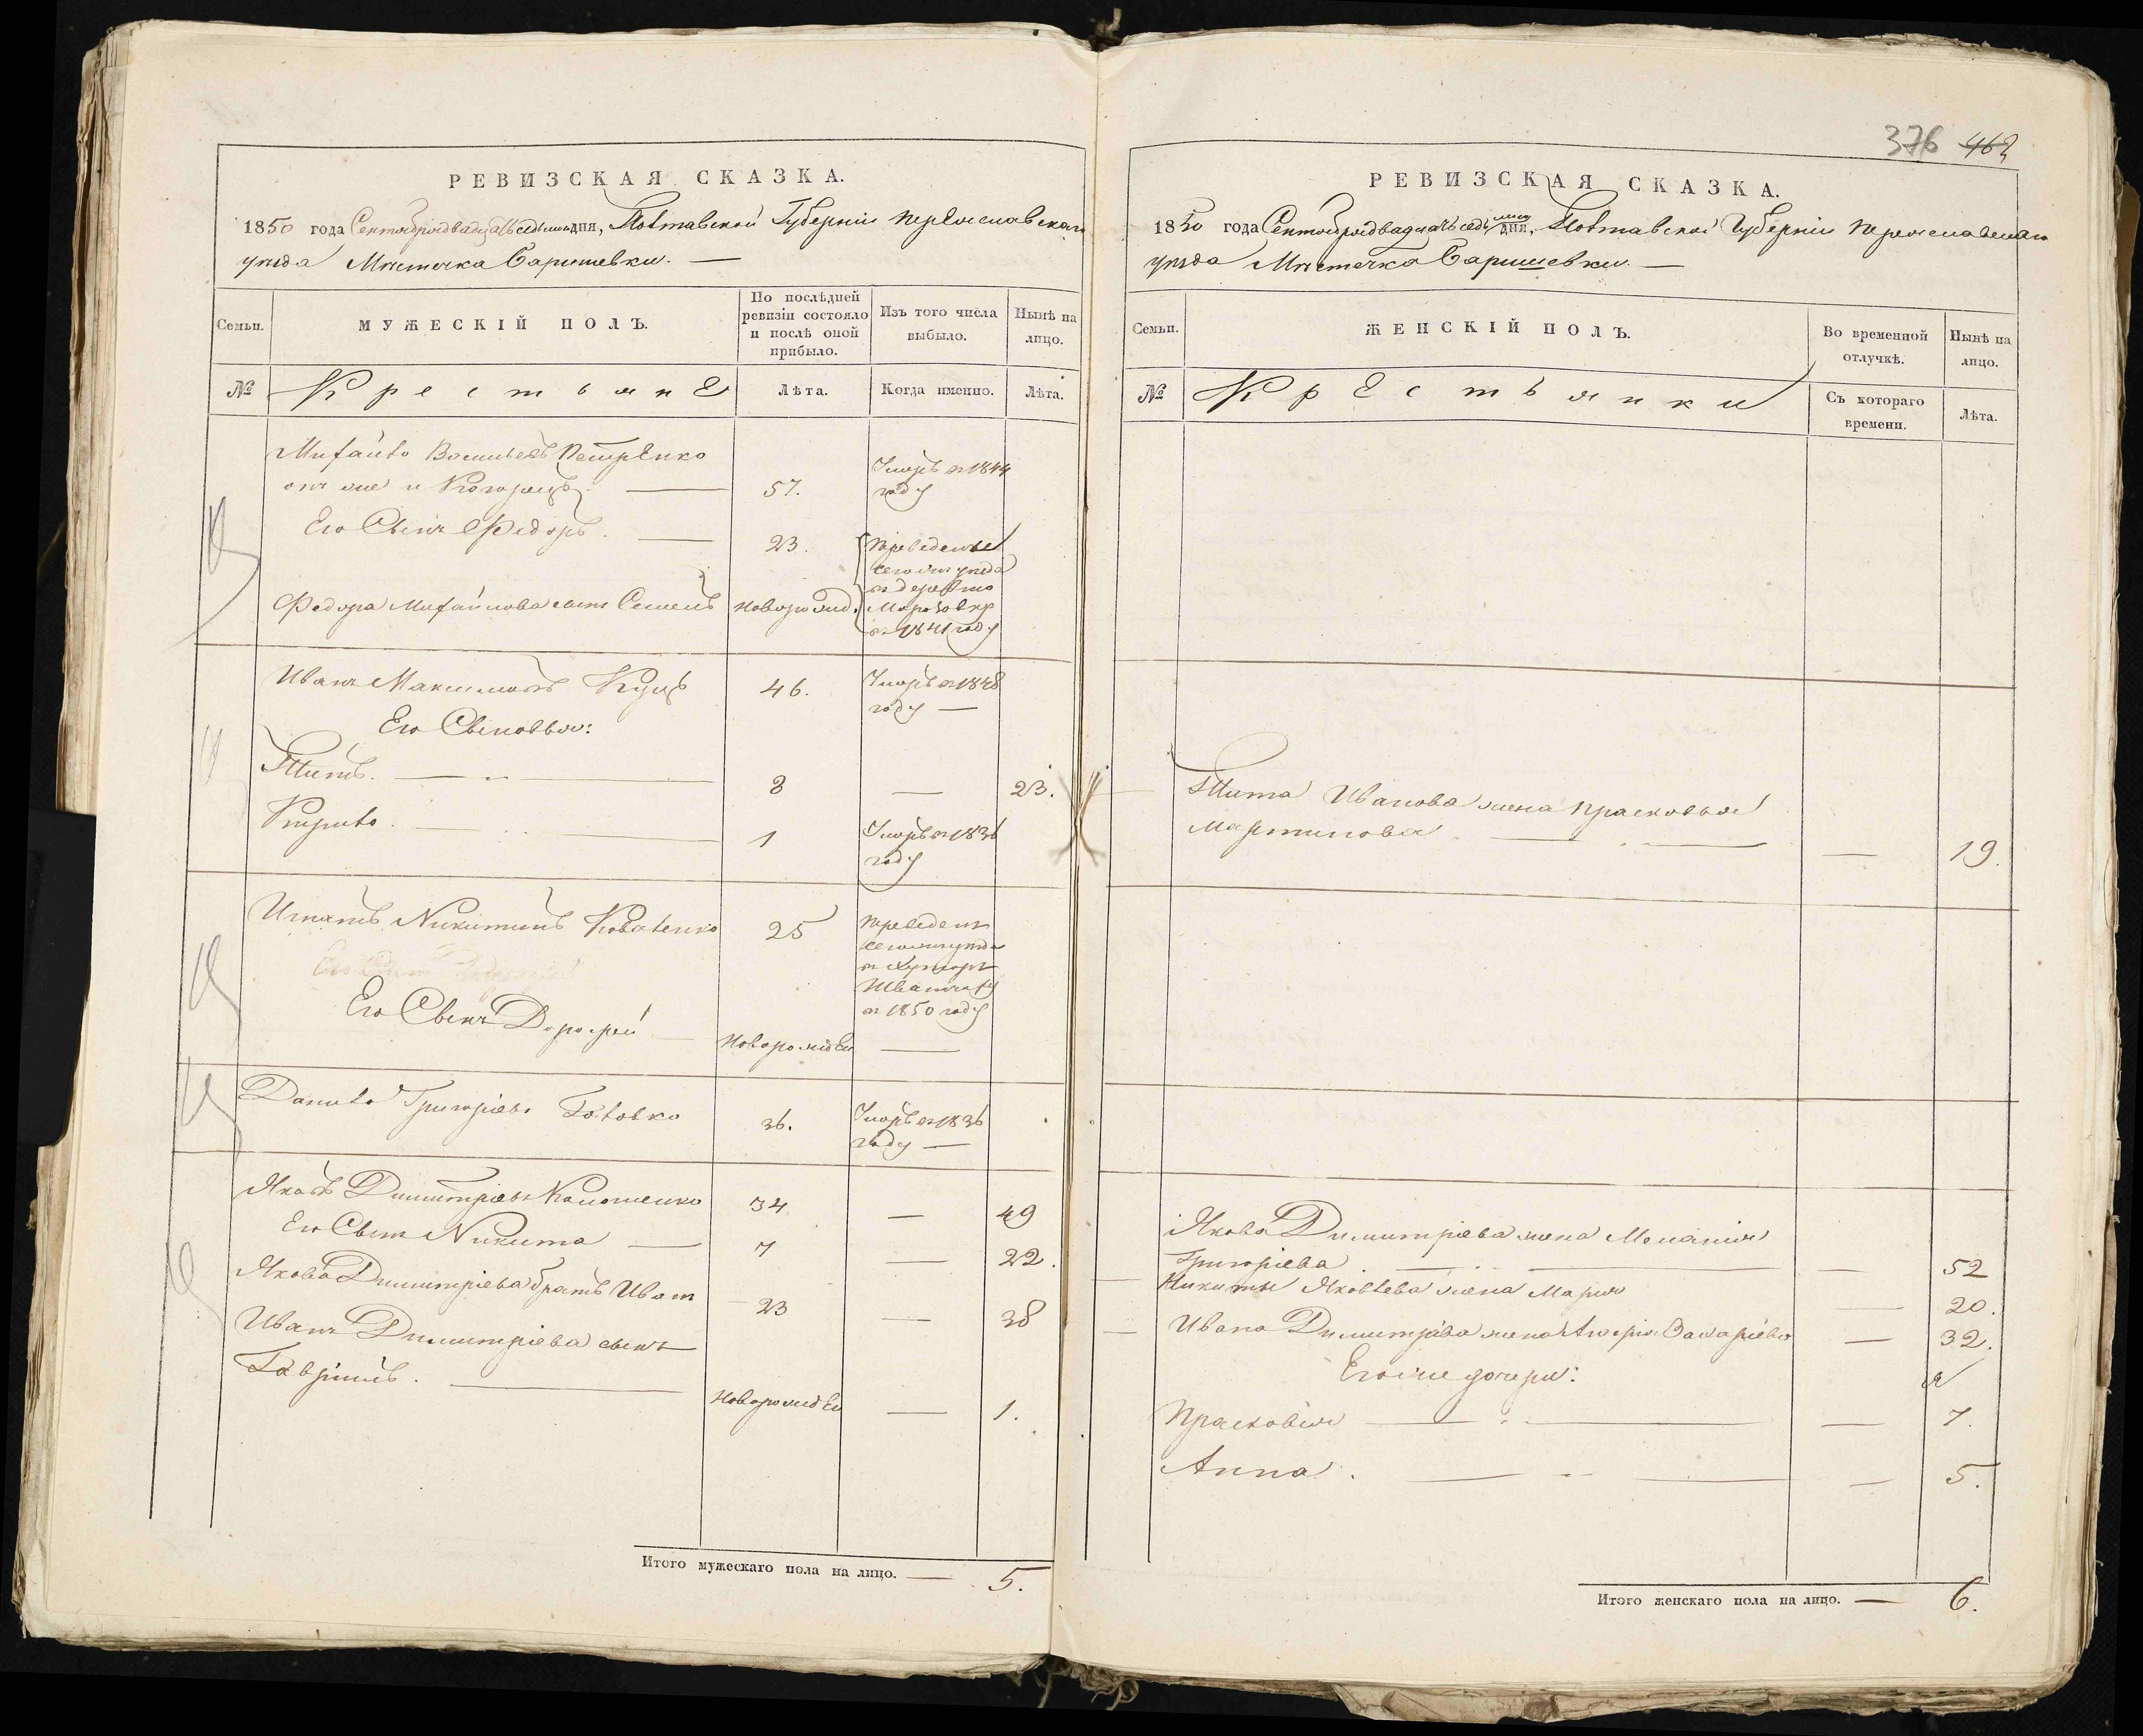 376 462
РЕВИЗСКАЯ СКАЗКА.
1850 года Сентября двадцать седьмого дня, Полтавской Губерніи Переяславскаго
уезда Местечка Баришевки. —
Семьи.
МУЖЕСКІЙ ПОЛЪ.
По послѣдней ревизіи состояло и послѣ оной прибыло.
Изъ того числа выбыло.
Нынѣ на лицо.
№
Крестьяне
Лѣта.
Когда именно.
Лѣта.
Михайло Васильевъ Петренко
онъ же и
57.
Умеръ въ 1844
году
Его Сынъ Федоръ. —
23.
Переведены
сегожъ уезда
въ деревню
Морозовку
въ 1841 году
Федора Михайлова сынъ Семенъ
новорожд.
Иванъ Максимовъ Куцъ
46.
Умеръ въ 1848
году —
Его Сыновья:
Титъ. —
8
—
23.
Кирило. —
1
Умеръ въ 1836
году
Игнатъ Никитинъ Коваленко
25
Переведенъ
сегожъ уезда
въ Хуторъ
въ 1850 году
Его Сынъ Дорофей
Новорожден
—
Данило Григорьевъ Головко
36.
Умеръ въ 1836
году —
Яковъ Димитріевъ
34
—
49
Его Сынъ Никита —
7
—
22.
Якова Димитріева братъ Иванъ
23
—
38
Иванъ Димитріева сынъ
Гавріилъ. —
Новорожден
—
1.
Итого мужескаго пола на лицо. — 5.
РЕВИЗСКАЯ СКАЗКА.
1850 года Сентября двадцать седьмого дня, Полтавской Губерніи Переяславскаго
уезда Местечка Баришевки. —
Семьи.
ЖЕНСКІЙ ПОЛЪ.
Во временной отлучкѣ.
Нынѣ на лицо.
№
Крестьянки
Съ котораго времени.
Лѣта.
Тита Иванова жена Прасковья
Мартинова —
—
19.
Якова Димитріева жена Меланія
Григоріева —
—
52
Никиты Яковлева жена Марія
—
20.
Ивана Димитріева жена Захаріева
—
32.
Его же дочери:
Прасковія —
—
7.
Анна. —
—
5.
Итого женскаго пола на лицо. — 6.